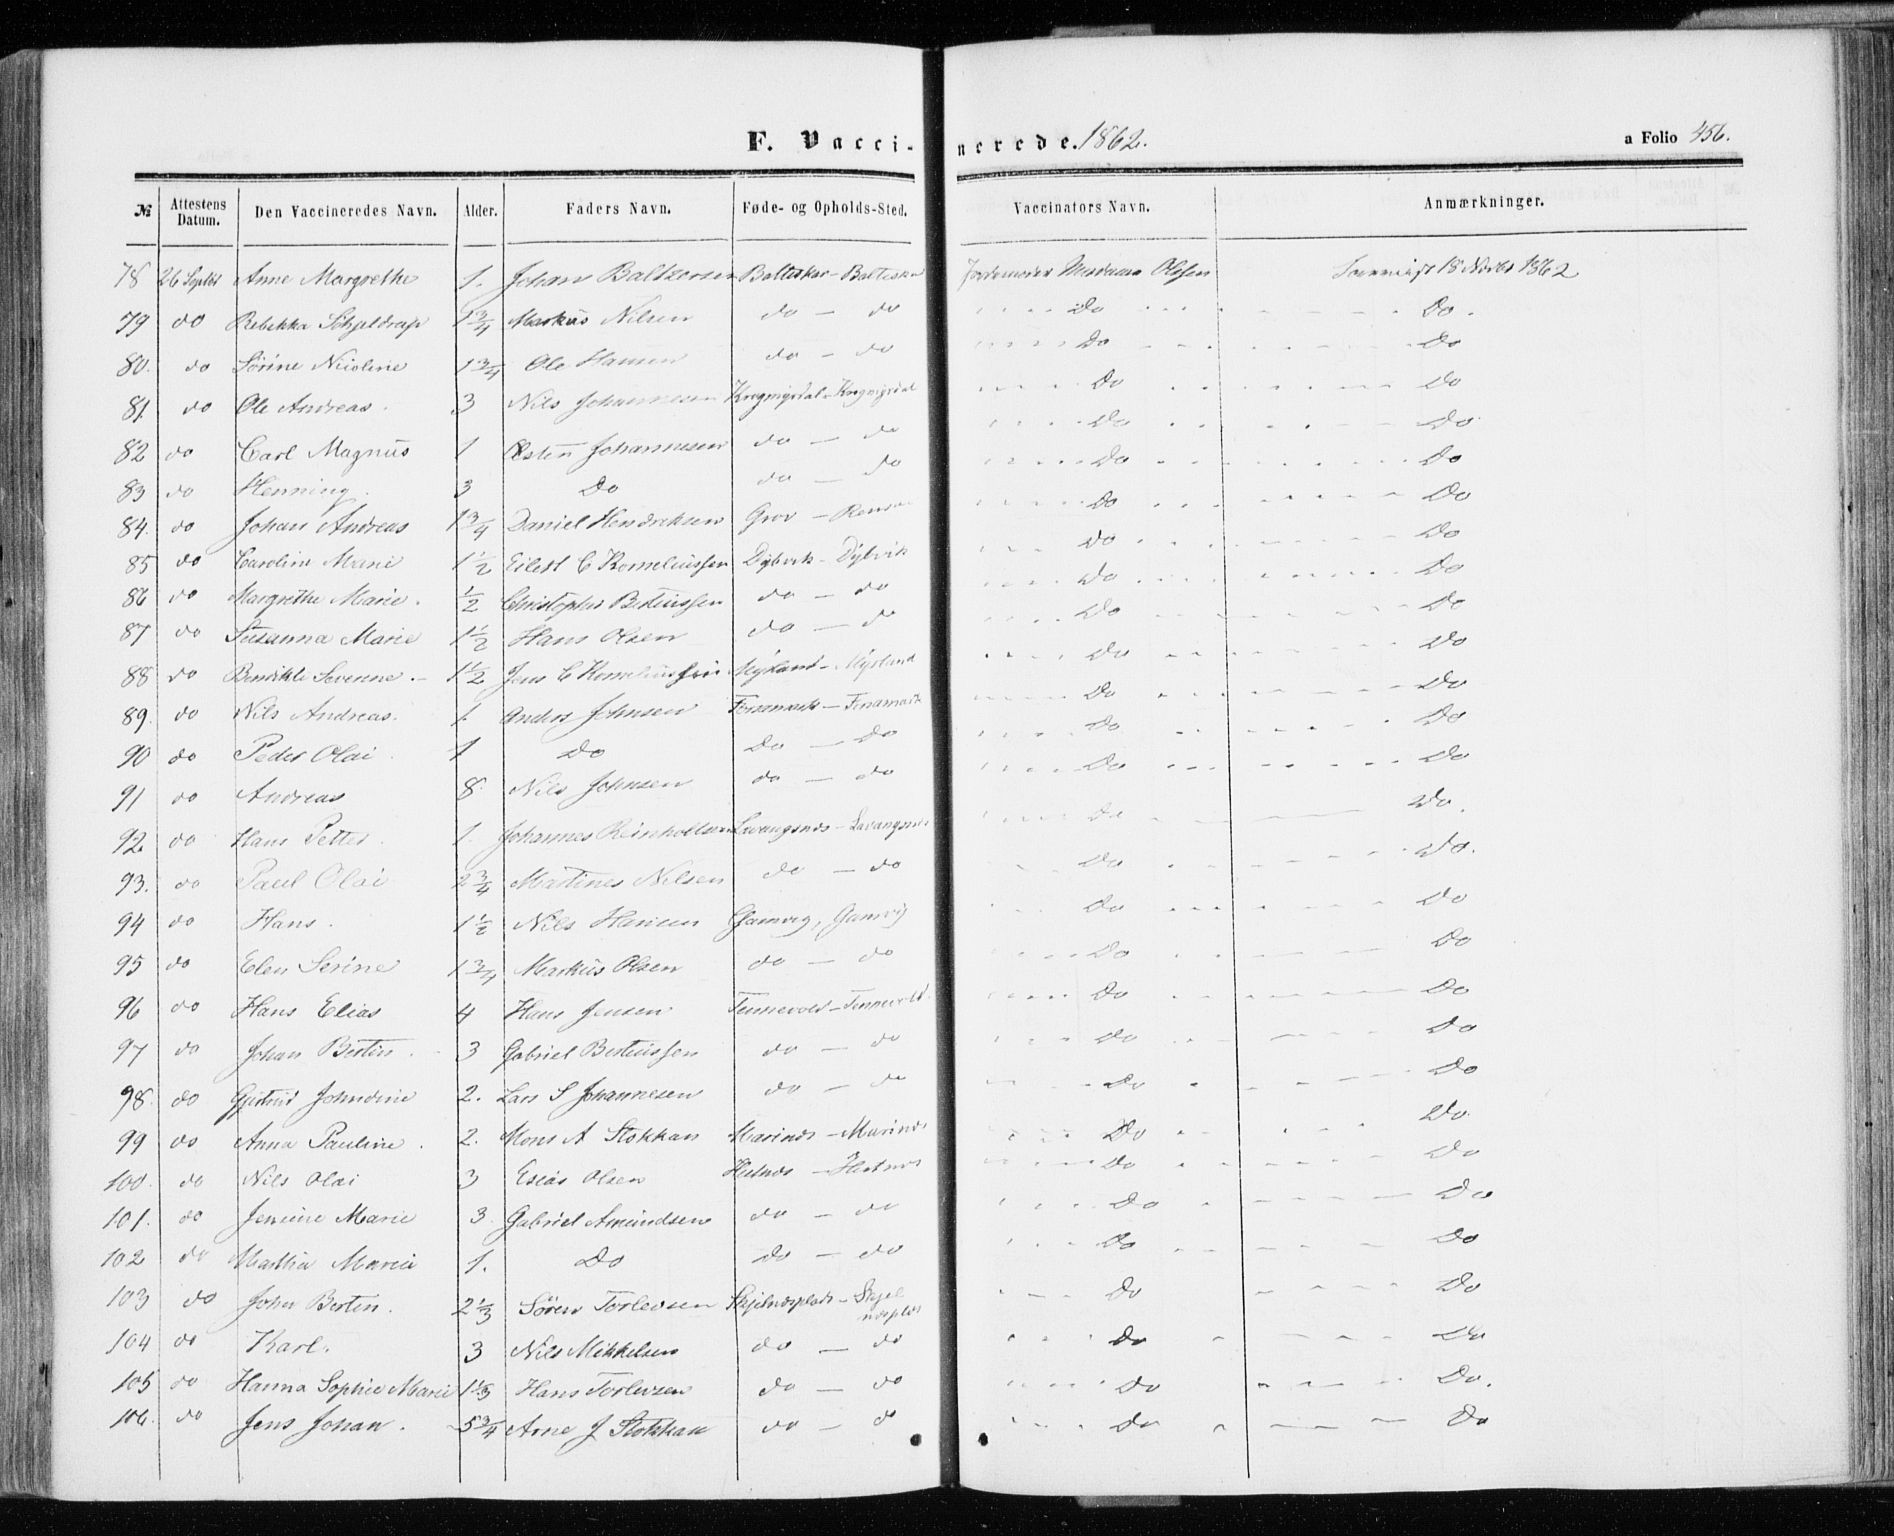 F. Vaccinerede. 1862. a Folio 456.
№ Attestens Datum. Den Vaccineredes Navn. Alder. Faders Navn. Føde- og Opholds-Sted. Vaccinators Navn. Anmærkninger.
78 26 Septbr Anne Margrethe 1. Johan Baltzersen Balteskar - Balteskar Jordemoder Madame Olsen 18 Novbr 1862
79 do Rebekka Schjeldrup 1 3/4 Markus Nilsen do - do Do Do.
80. do Sørine Nicoline 1 3/4 Ole Hansen do - do Do Do
81. do Ole Andreas. 3 Nils Johannesen Do Do
82 do Carl Magnus 1 Østen Johannesen do - do Do Do
83 do Henning. 3 Do do - do Do Do
84. do Johan Andreas 1 3/4 Daniel Hendriksen Grov - Do Do
85 do Caroline Marie 1 1/2 Eilert C Korneliussen Dybvik - Dybvik Do Do
86 do Margrethe Marie. 1/2 Christopher Bertiussen do - do Do Do
87 do Susanna Marie 1 1/2 Hans Olsen do - do Do Do
88 do Bendikte Severine. - 1 1/2 Jens C Korneliussen Myrland - Myrland Do Do
89. do Nils Andreas. 1. Anders Johnsen Forsamark - Forsamark Do Do
90 do Peder Olai. 1 Do Do - Do Do Do
91 do Andreas 8. Nils Johnsen do - do Do Do
92 do Hans Petter. 1. Johannes Reinholtsen Lavangsnes - Lavangsnes Do Do.
93. do Paul Olai 2 3/4 Martines Nilsen do - do Do Do.
94 do Hans. 1 1/2 Nils Hansen Gamvig, Gamvig Do Do
95 do Elen Serine 1 3/4 Markus Olsen do - do Do Do
96 do Hans Elias 4 Hans Jensen Tennevold - Tennevold. Do Do
97 do Johan Bertin. - 3 Gabriel Bertiussen do - do Do Do
98. do Gjertrud Johndine 2. Lars S Johannesen do - do Do Do
99 do Anna Pauline. 2. Mons A Stokkan Marines - Marines Do Do
100. do Nils Olai 3 Esias Olsen Hestnes - Hestnes Do Do
101. do Jensine Marie 3. Gabriel Amundsen do - do Do Do
102 do Marthia Maria 1. Do Do - do Do Do
103 do John Bertin. 2 1/3 Søren Torlevsen Skjelnesplads - Skjel
nesplds Do Do
104 do Karl. 3 Nils Mikkelsen do - do Do Do
105 do Hanna Sophie Marie 1 1/3 Hans Torlevsen do - do Do Do.
106. do Jens Johan. 5 3/4 Arne J Stokkan do - d Do Do